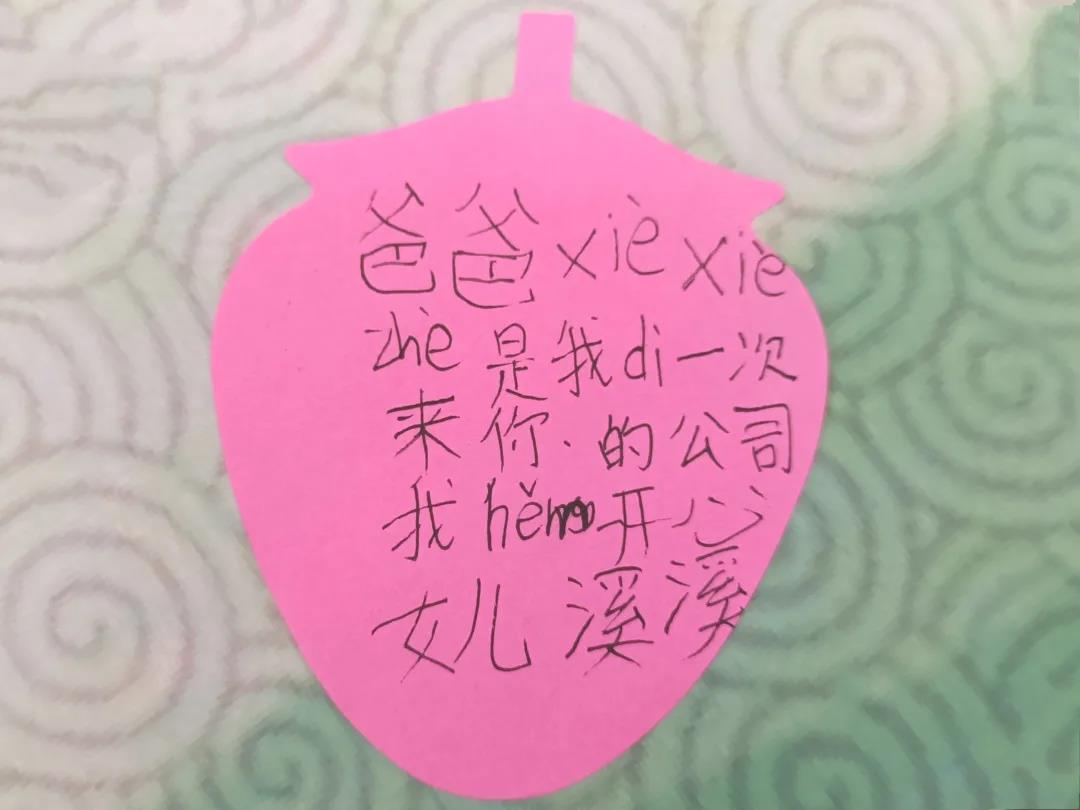 爸爸 xiè xiè
zhè 是我 di 一次
来你.的公司
我 hěn 开心
女儿溪溪